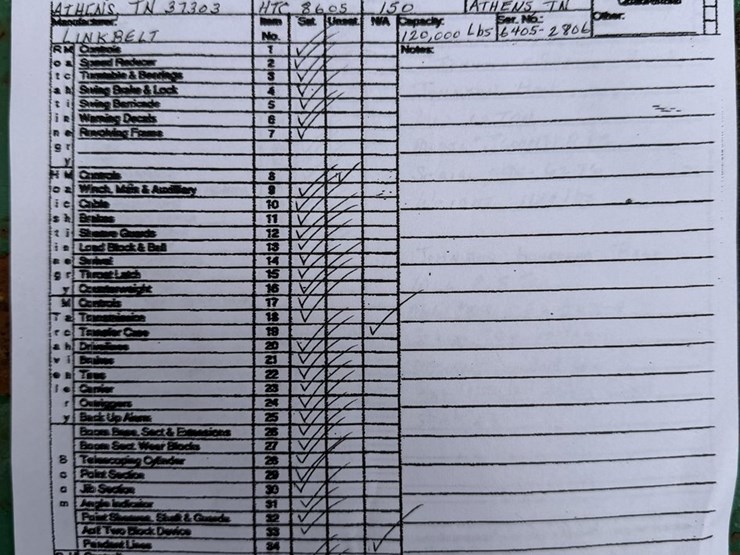 ATHENS, TN 37303 HTC 8605 150 ATHENS, TN
Manufacturer: Item Sat. Unsat. N/A Capacity: Ser. No.: Other:
LINKBELT No. 120,000 Lbs 6405-2806
Controls 1 Notes:
Speed Reducer 2
Turntable & Bearings 3
Swing Brake & Lock 4
Swing Barricade 5
Warning Decals 6
Revolving Frame 7
Controls 8
Winch, Main & Auxiliary 9
Cable 10
Brakes 11
Sheave Guards 12
Load Block & Ball 13
Swivel 14
Throat Latch 15
Counterweight 16
Controls 17
Transmission 18
Transfer Case 19
Drivelines 20
Brakes 21
Tires 22
Carrier 23
Outriggers 24
Back Up Alarm 25
Boom Base, Sect & Extensions 26
Boom Sect. Wear Blocks 27
Telescoping Cylinder 28
Point Section 29
Jib Section 30
Angle Indicator 31
Point Sheaves, Shaft & Guards 32
Anti Two Block Device 33
Pendant Lines 34